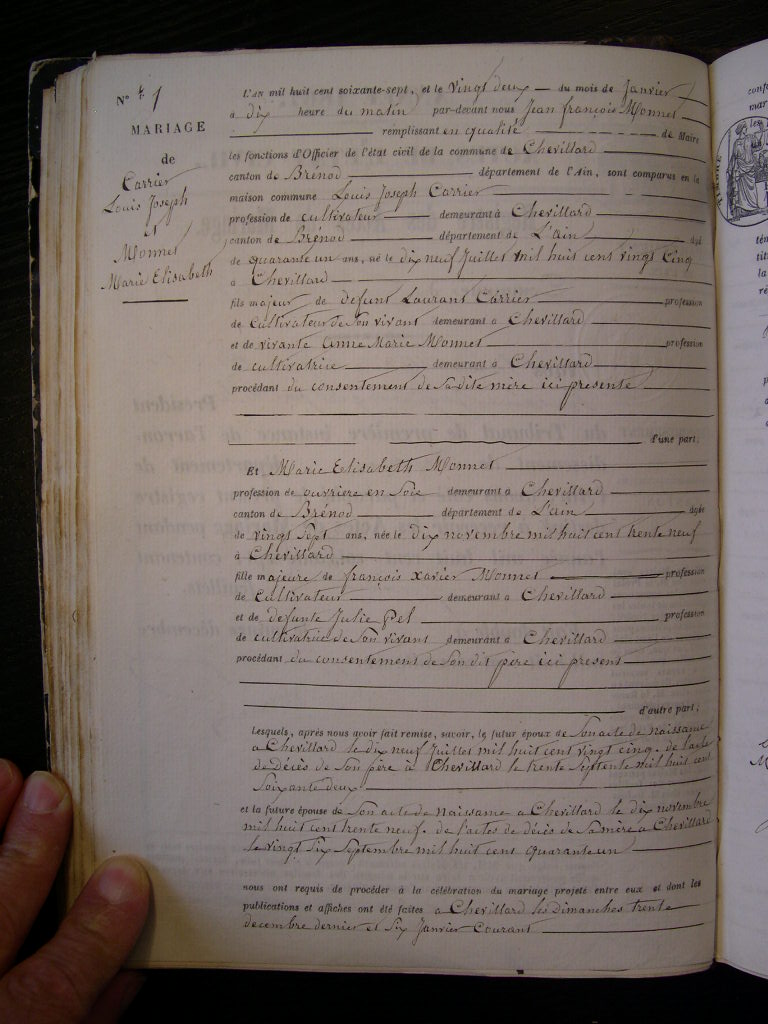 N° 1
MARIAGE
de
Carrier
Louis Joseph
et
Monnet
Marie Elisabeth
L'AN mil huit cent soixante-sept, et le vingt deux du mois de Janvier
à dix heure du matin par-devant nous Jean françois Monnet
remplissant en qualité de Maire
les fonctions d'Officier de l'état civil de la commune de Chevillard
canton de Brénod département de l'Ain, sont comparus en la
maison commune Louis Joseph Carrier
profession de cultivateur demeurant à Chevillard
canton de Brénod département de L'ain âgé
de quarante un ans, né le dix neuf Juillet mil huit cent vingt Cinq
à Chevillard
fils majeur de defunt Laurant Carrier profession
de Cultivateur de son vivant demeurant à Chevillard
et de vivante anne Marie Monnet profession
de cultivatrice demeurant à Chevillard
procédant du consentement de sa dite mère ici presente
d'une part.
Et Marie Elisabeth Monnet
profession de ouvriere en Soie demeurant à Chevillard
canton de Brénod département de L'ain âgée
de vingt Sept ans, née le dix novembre mil huit cent trente neuf
à Chevillard
fille majeure de françois xavier Monnet profession
de Cultivateur demeurant à Chevillard
et de defunte Julie Pel profession
de cultivatrice de son vivant demeurant à Chevillard
procédant du consentement de Son dit père ici present
d'autre part;
Lesquels, après nous avoir fait remise, savoir, le futur époux de Son acte de naissance
a Chevillard le dix neuf Juillet mil huit cent vingt cinq. de l'acte
de Décès de Son père à Chevillard le trente Septente mil huit cent
Soixante deux
et la future épouse de Son acte de Naissance a Chevillard le dix novembre
mil huit cent trente neuf. de l'actes de décès de Sa mère a Chevillard
le vingt Six Septembre mil huit cent quarante un
nous ont requis de procéder à la célébration du mariage projeté entre eux et dont les
publications et affiches ont été faites a Chevillard les Dimanches trente
decembre dernier et Six Janvier Courant